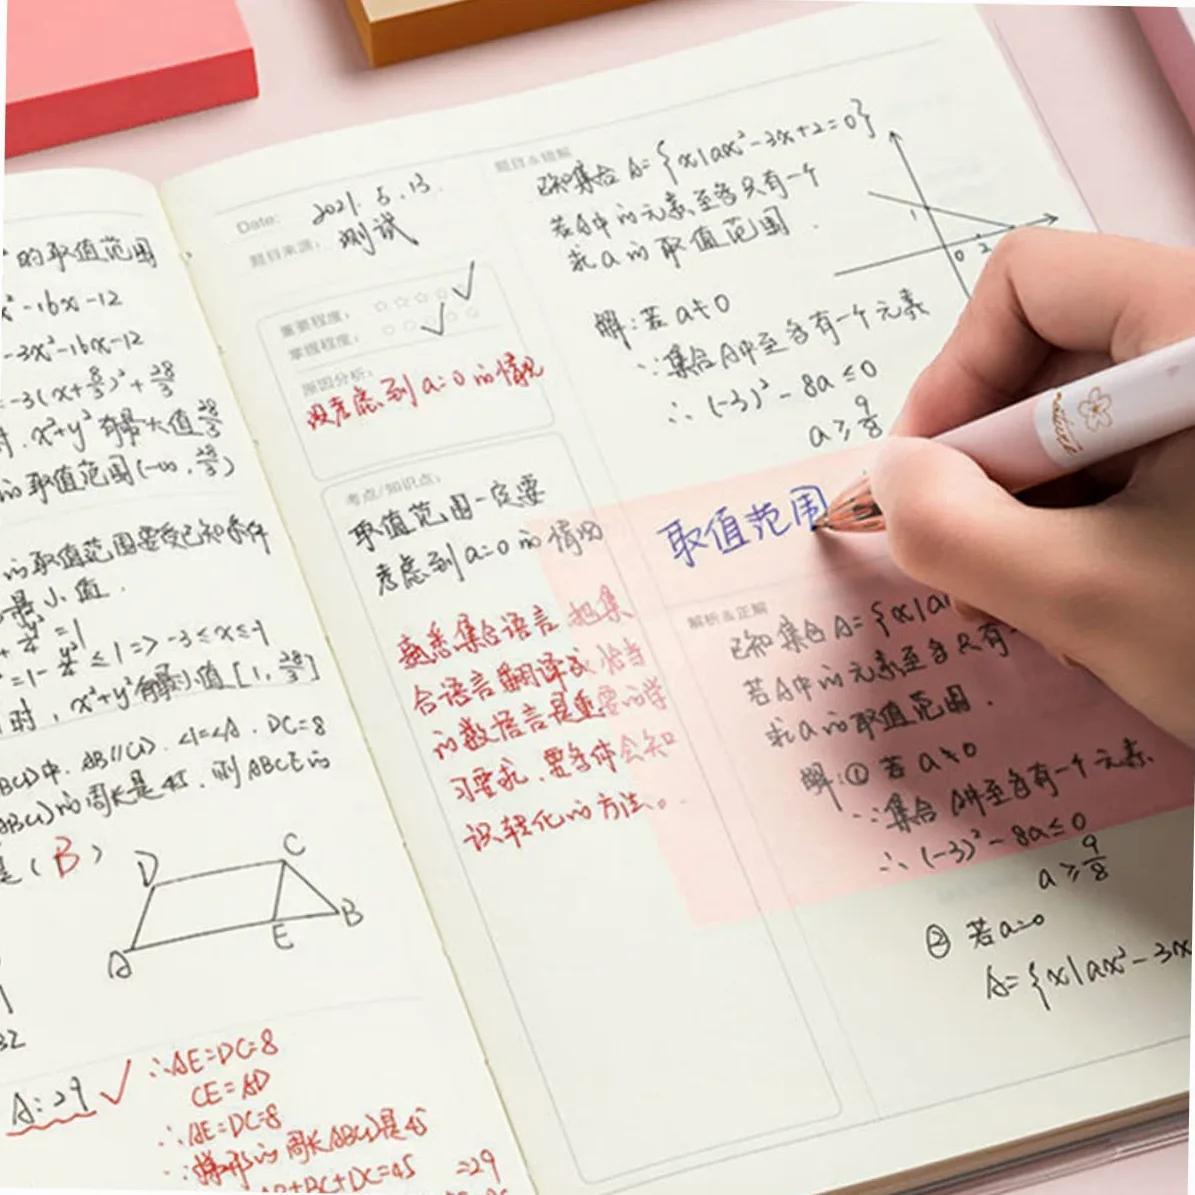 的取值范围
x²-16x-12
-3x²-16x-12
=-3(x+8/3)²+28/3
时.x²+y²有最大值28/3
的取值范围(-∞,28/3)
的取值范围要受已知条件
最小值.
=1
=1- ≤1=>-3≤x≤-1
时,x²+y²有最小值[1,28/3]
BCD中.AB//CD.∠1=∠A.DC=8
的周长是45.则
是(B)
D
C
A
E
B
32
A:29
∴AE=DC=8
CE=AD
∴AE=DC=8
∵梯形的周长ABCD是45
+BC+DC=45
=29
Date: 2021.5.13.
题目来源: 测试
重要程度: ☆☆☆☆
掌握程度: ○○○○○
原因分析:
没考虑到a=0的情况
考点/知识点:
取值范围一定要
考虑到a=0的情况
熟悉集合语言.把集
合语言翻译成恰当
的数语言是重要的学
习要求.要多体会知
识转化的方法。
题目&错解
已知集合A={x|ax²-3x+2=0}
若A中的元素至多只有一个
求a的取值范围.
1
0
2
解:若a≠0
∵集合A中至多有一个元素
∴(-3)²-8a≤0
a≥9/8
取值范围
解析&正解
已知集合A={x|a
若A中的元素至多只有一
求a的取值范围.
解:①若a≠0
∵集合A中至多有一个元素.
∴(-3)²-8a≤0
a≥9/8
②若a=0
A={x|ax²-3x